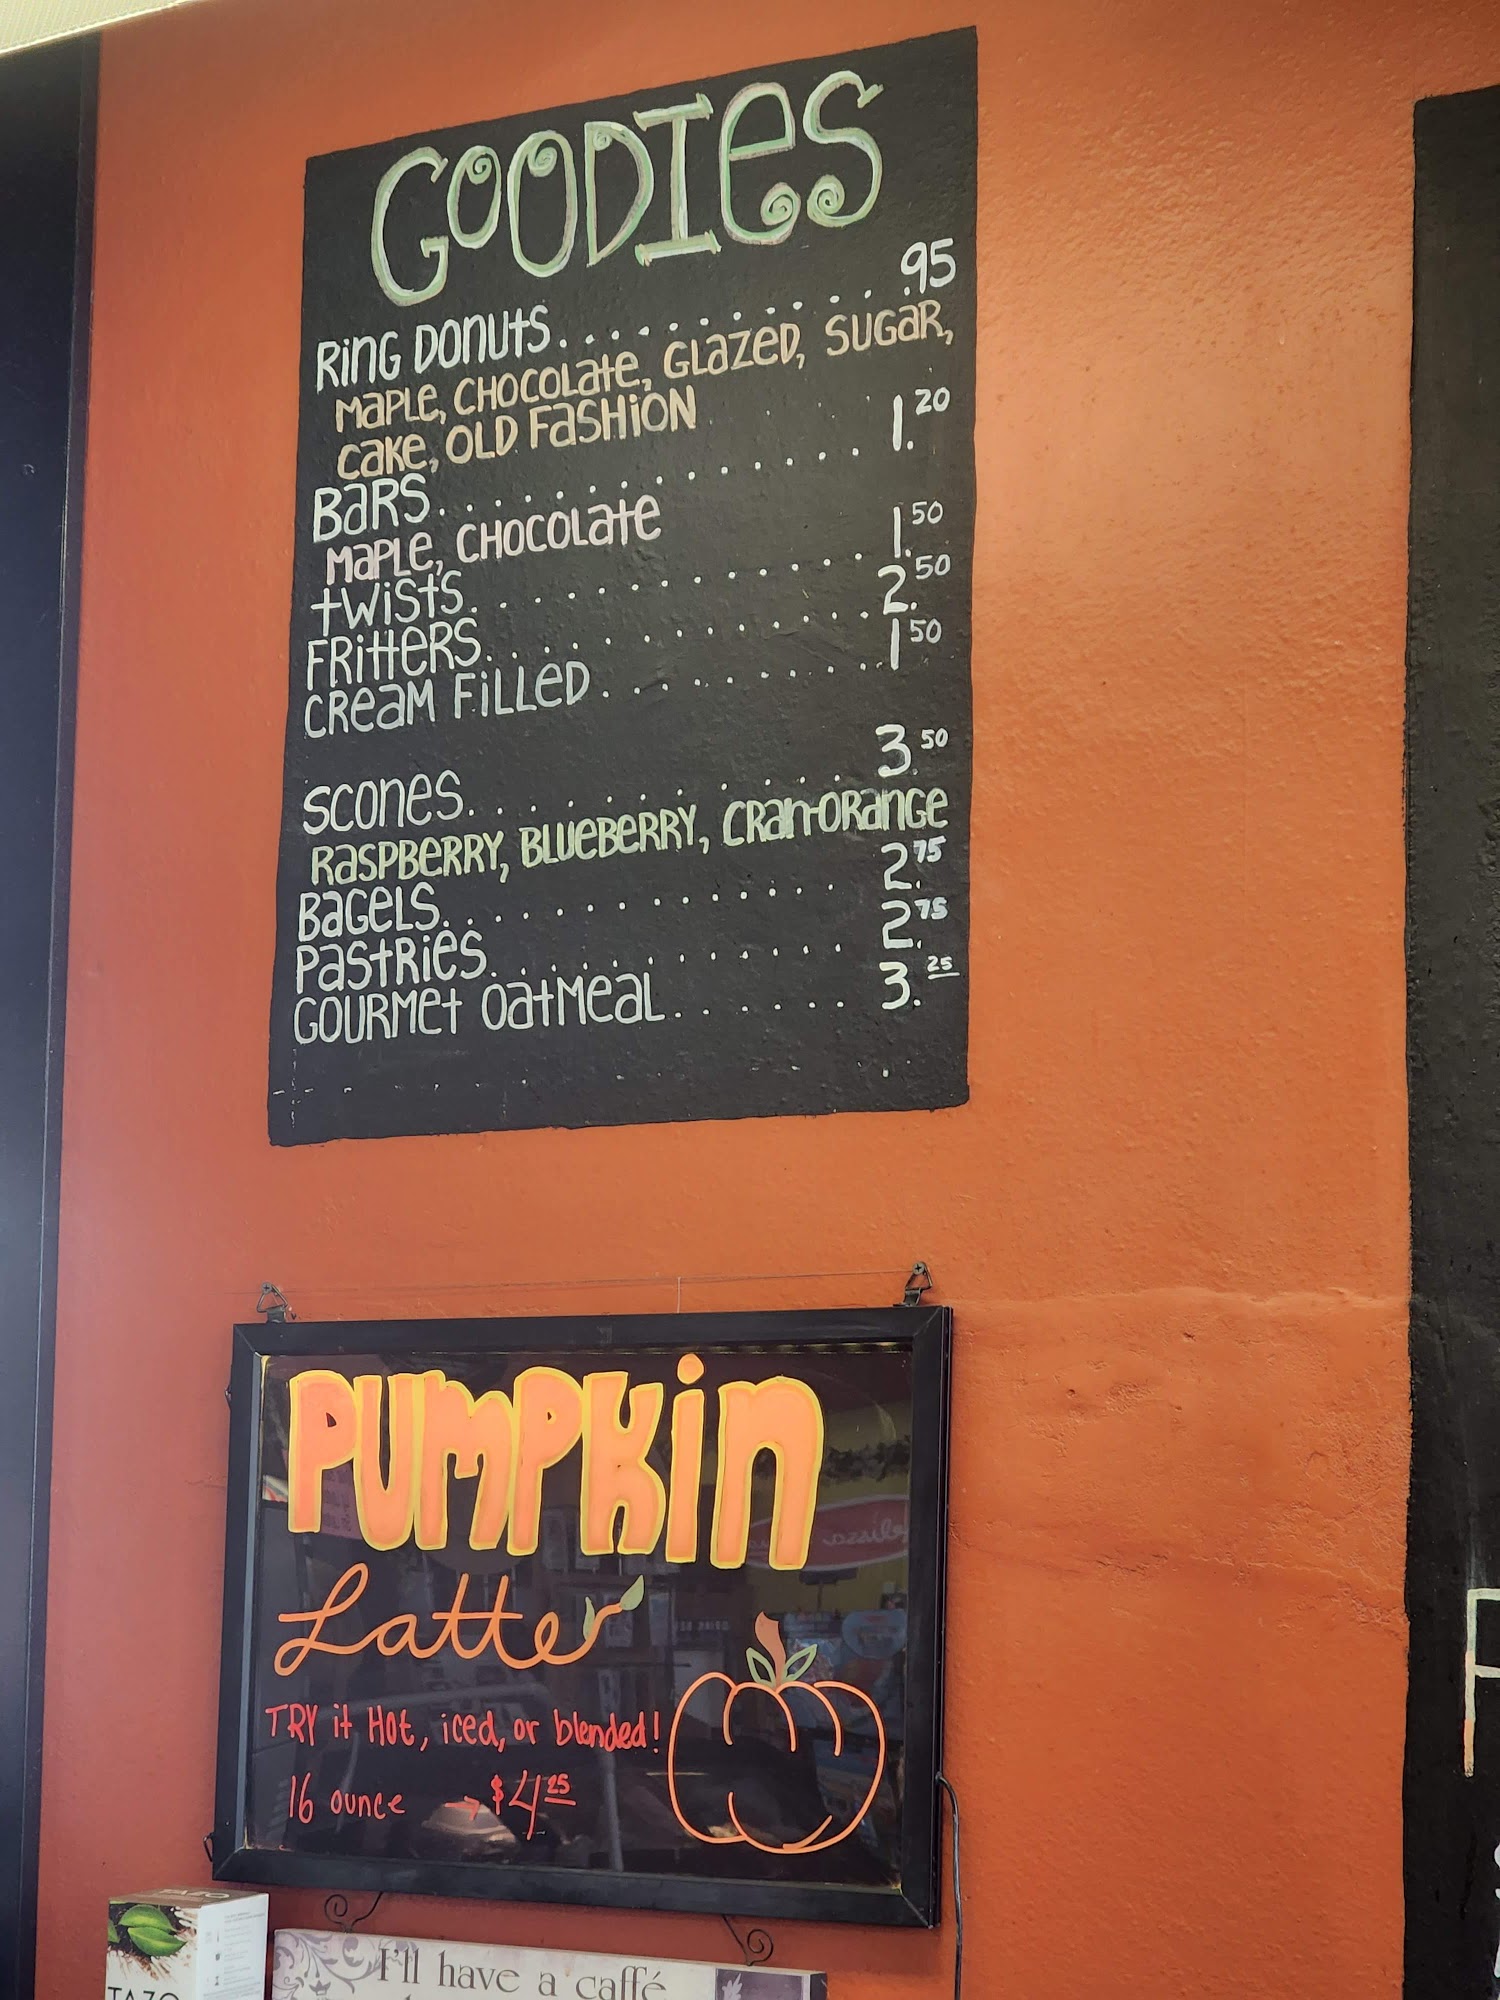 GOODIES
RING DONUTS . . . . . . . . . . .95
MAPLE, CHOCOLATE, GLAZED, SUGAR,
CAKE, OLD FASHION
BARS . . . . . . . . . . . . . . 1.20
MAPLE, CHOCOLATE
TWISTS . . . . . . . . . . . . . 1.50
FRITTERS . . . . . . . . . . . . 2.50
CREAM FILLED . . . . . . . . . . 1.50
SCONES . . . . . . . . . . . . . 3.50
RASPBERRY, BLUEBERRY, CRAN-ORANGE
BAGELS . . . . . . . . . . . . . 2.75
PASTRIES . . . . . . . . . . . . 2.75
GOURMET OATMEAL . . . . . . . 3.25
PUMPKIN
Latte
TRY it Hot, iced, or blended!
16 ounce → $4.25
TAZO
I'll have a caffé